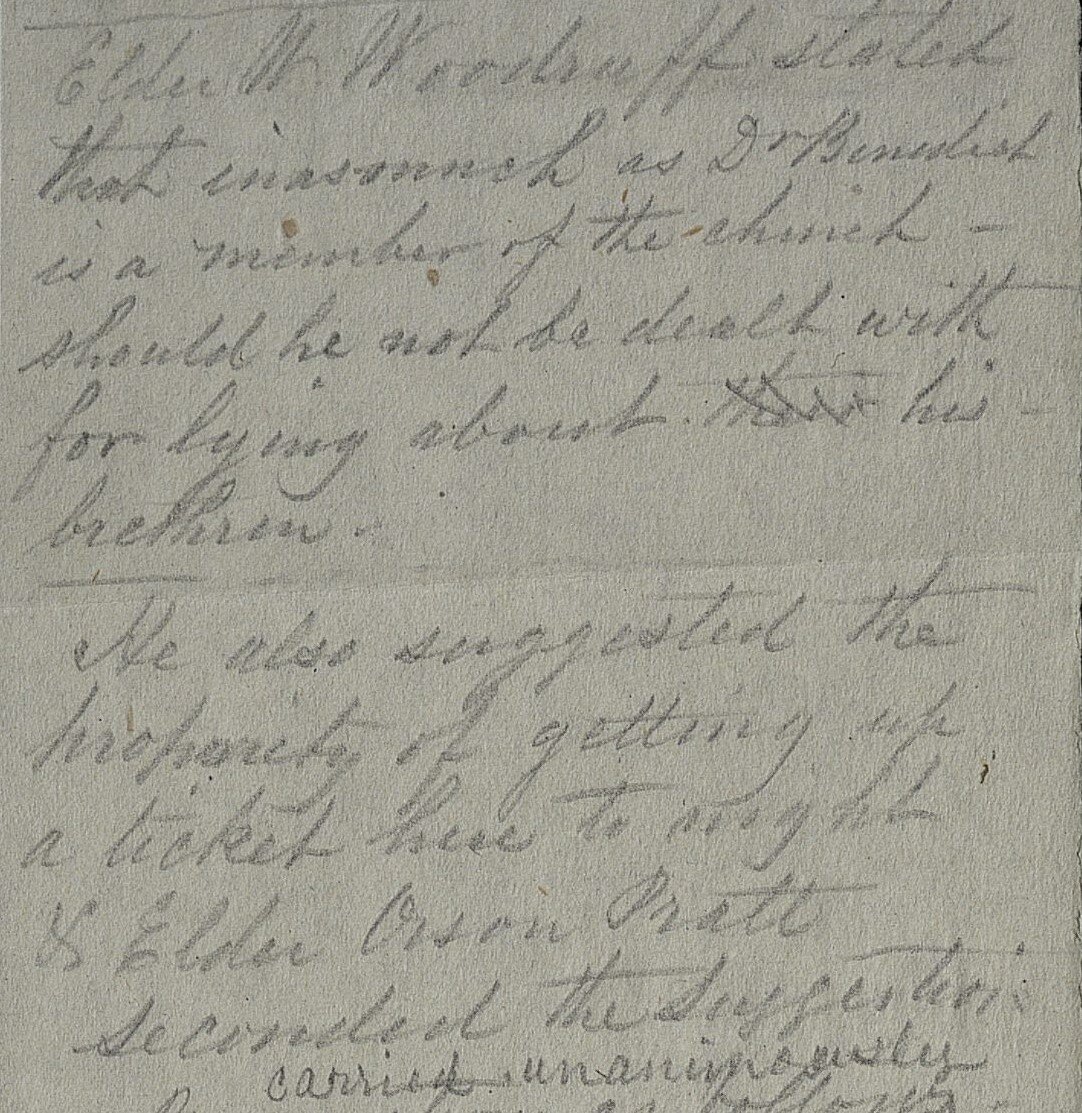 Elder W Woodruff stated
that inasmuch as Dr Benedict
is a member of the church -
should he not be dealt with
for lying about his -
brethren -
He also suggested the
propriety of getting up
a ticket here to night
& Elder Orson Pratt
seconded the suggestion.
carried unanimously
as follows